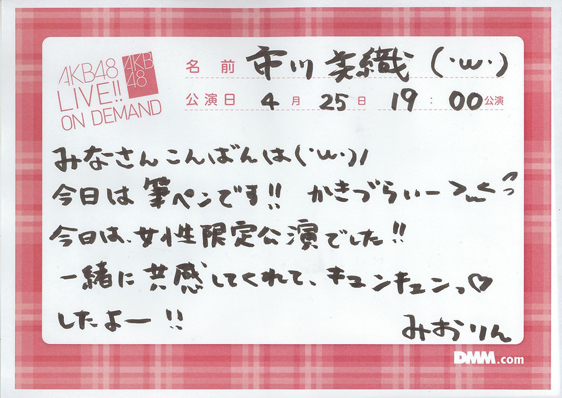 AKB48
LIVE!!
ON DEMAND
AKB
48
名前 市川美織 (･ω･)
公演日 4月25日 19:00公演
みなさんこんばんは(･ω･)ﾉ
今日は筆ペンです!! かきづらいー>_<っ
今日は、女性限定公演でした!!
一緒に共感してくれて、キュンキュンっ♡
したよー!!
みおりん
DMM.com